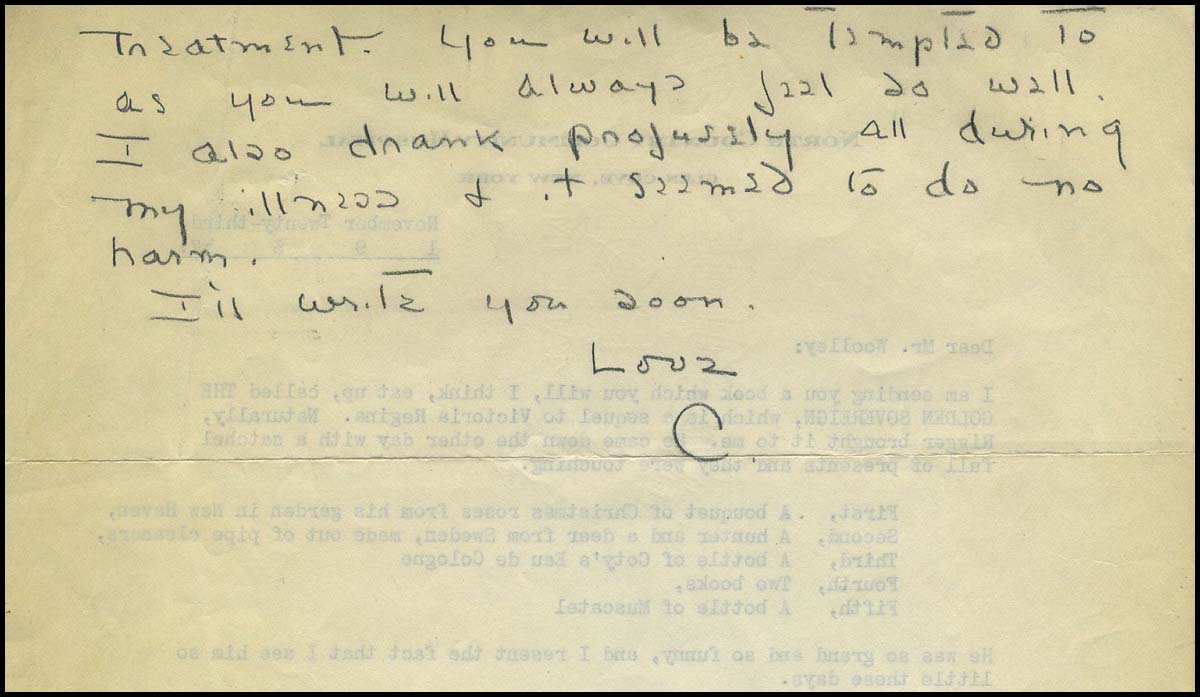 Treatment. You will be tempted to
as you will always feel so well.
I also drank profusely all during
my illness & it seemed to do no
harm.
I'll write you soon.
Love
C.
NORTH COUNTRY COMMUNITY HOSPITAL
GLEN COVE, NEW YORK
November Twenty-third
1 9 3
Dear Mr. Woolley:
I am sending you a book which you will, I think, eat up, called THE
GOLDEN SOVEREIGN, which is a sequel to Victoria Regina. Naturally,
brought it to me. He came down the other day with a satchel
full of presents and they were touching.
First, A bouquet of Christmas roses from his garden in New Haven,
Second, A hunter and a deer from Sweden, made out of pipe cleaners,
Third, A bottle of Coty's Eau de Cologne
Fourth, Two books,
Fifth, A bottle of Muscatel
He was so grand and so funny, and I resent the fact that I see him so
little these days.